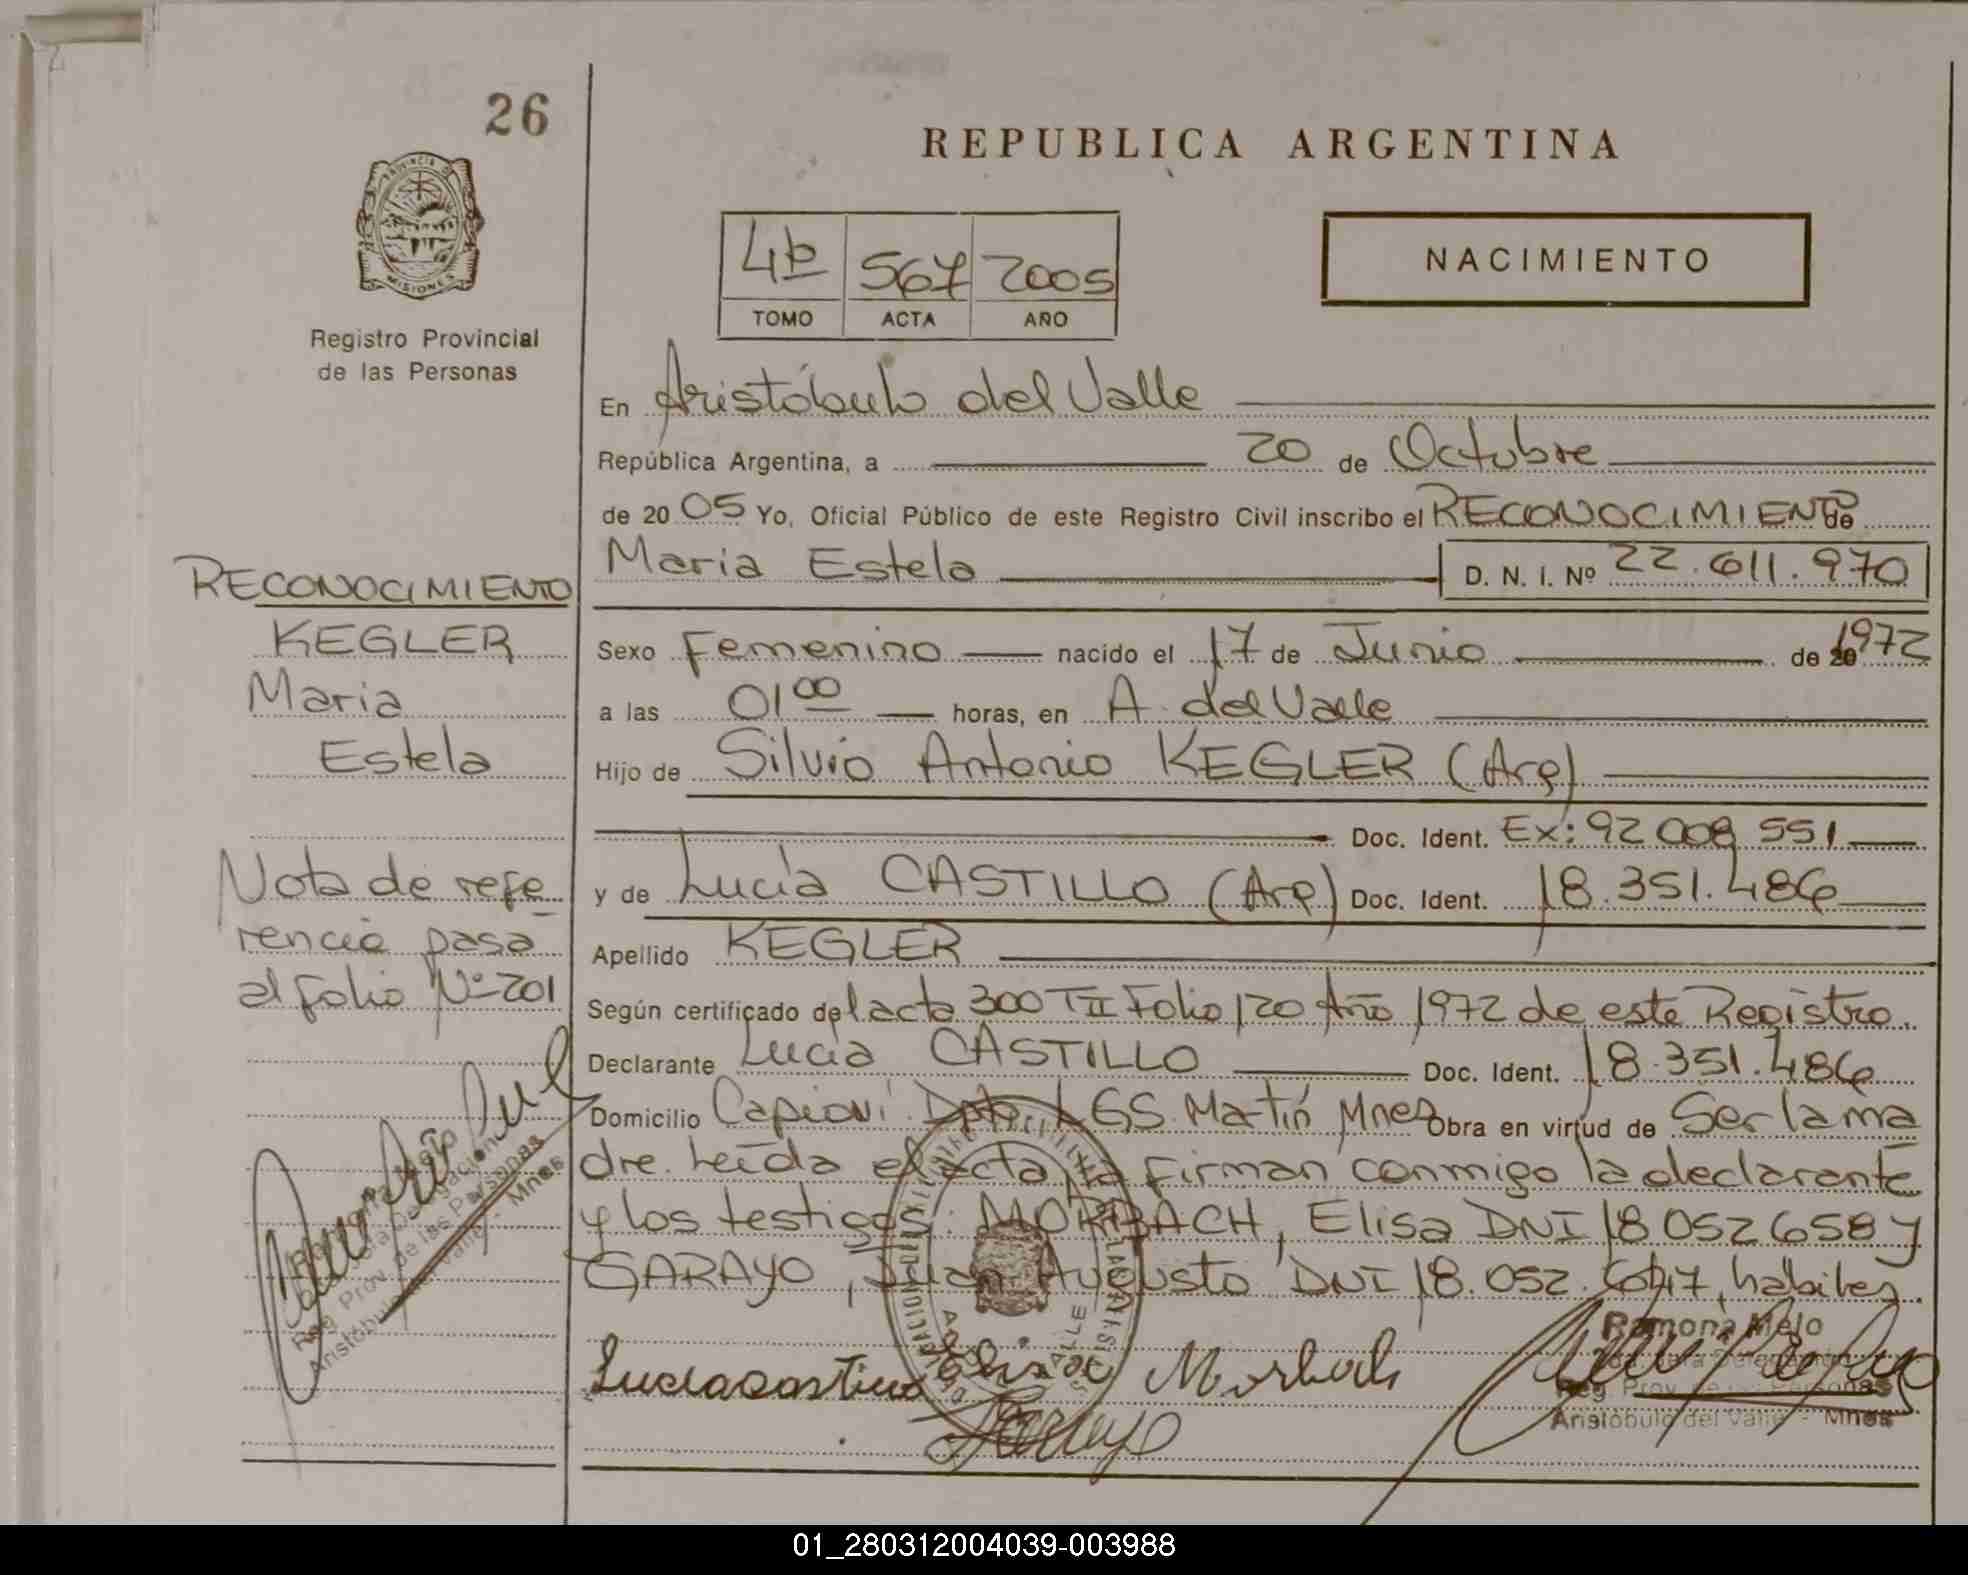 26
REPUBLICA ARGENTINA
PROVINCIA DE MISIONES
4º 567 2005
TOMO ACTA AÑO
NACIMIENTO
Registro Provincial
de las Personas
En Aristóbulo del Valle
República Argentina, a 20 de Octubre
de 20 05 Yo, Oficial Público de este Registro Civil inscribo el RECONOCIMIENTO de
Maria Estela D. N. I. Nº 22.611.970
Sexo Femenino nacido el 17 de Junio de 20 1972
a las 01 00 horas, en A. del Valle
Hijo de Silvio Antonio KEGLER (Arg)
Doc. Ident. Ex: 92 008 551
y de Lucía CASTILLO (Arg) Doc. Ident. 18.351.486
Apellido KEGLER
Según certificado del acta 300 T II Folio 120 Año 1972 de este Registro.
Declarante Lucía CASTILLO Doc. Ident. 18.351.486
Domicilio Capioví Dpto. LGS. Martín Mnes Obra en virtud de Ser la ma
dre. Leída el acta, la firman conmigo la declarante
y los testigos: MORBACH, Elisa DNI 18 052 658 y
GARAYO, Juan Augusto DNI 18.052. hábiles.
Lucia Castillo Elisa Morbach
Garayo
Ramona Mejo
Reg. Prov. de las Personas
Aristóbulo del Valle - Mnes
RECONOCIMIENTO
KEGLER
Maria
Estela
Nota de refe
rencia pasa
al folio Nº 201
Reg. Prov. de las Personas
Aristóbulo del Valle - Mnes
01_280312004039-003988